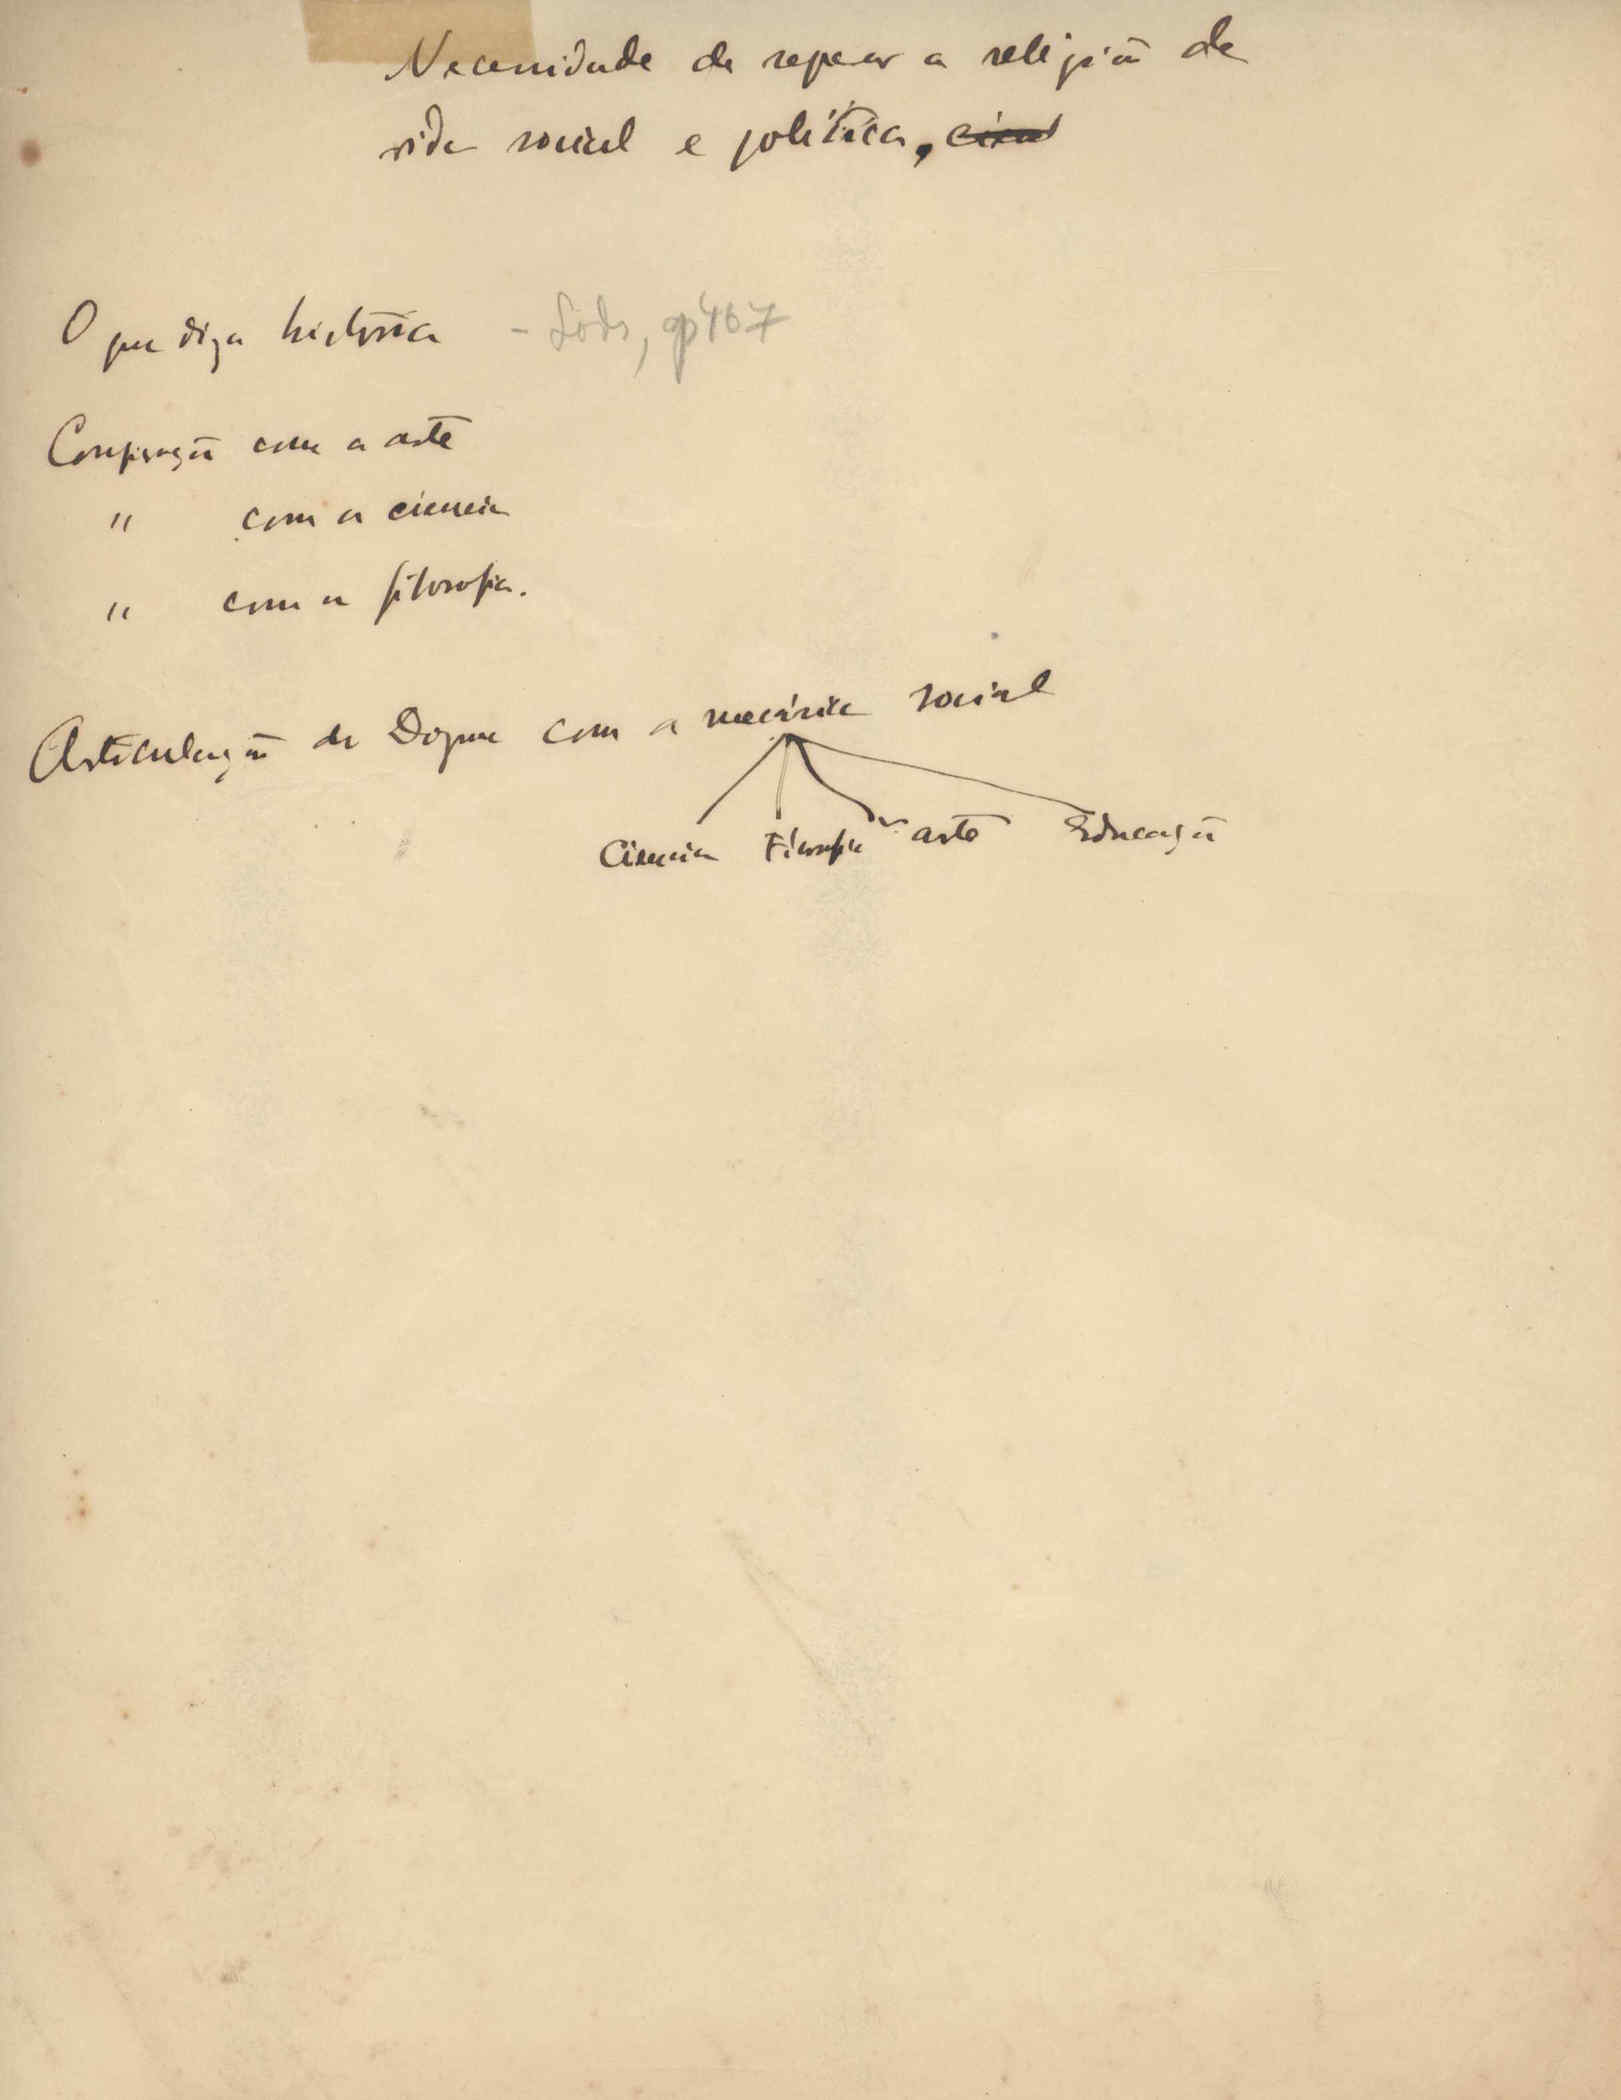 Necessidade de separar a religião da
vida social e política,
O que diz a história - Lods, p 467
Comparação com a arte
" com a ciencia
" com a filosofia.
Articulação do Dogma com a mecânica social
Ciencia Filosofia arte Educação